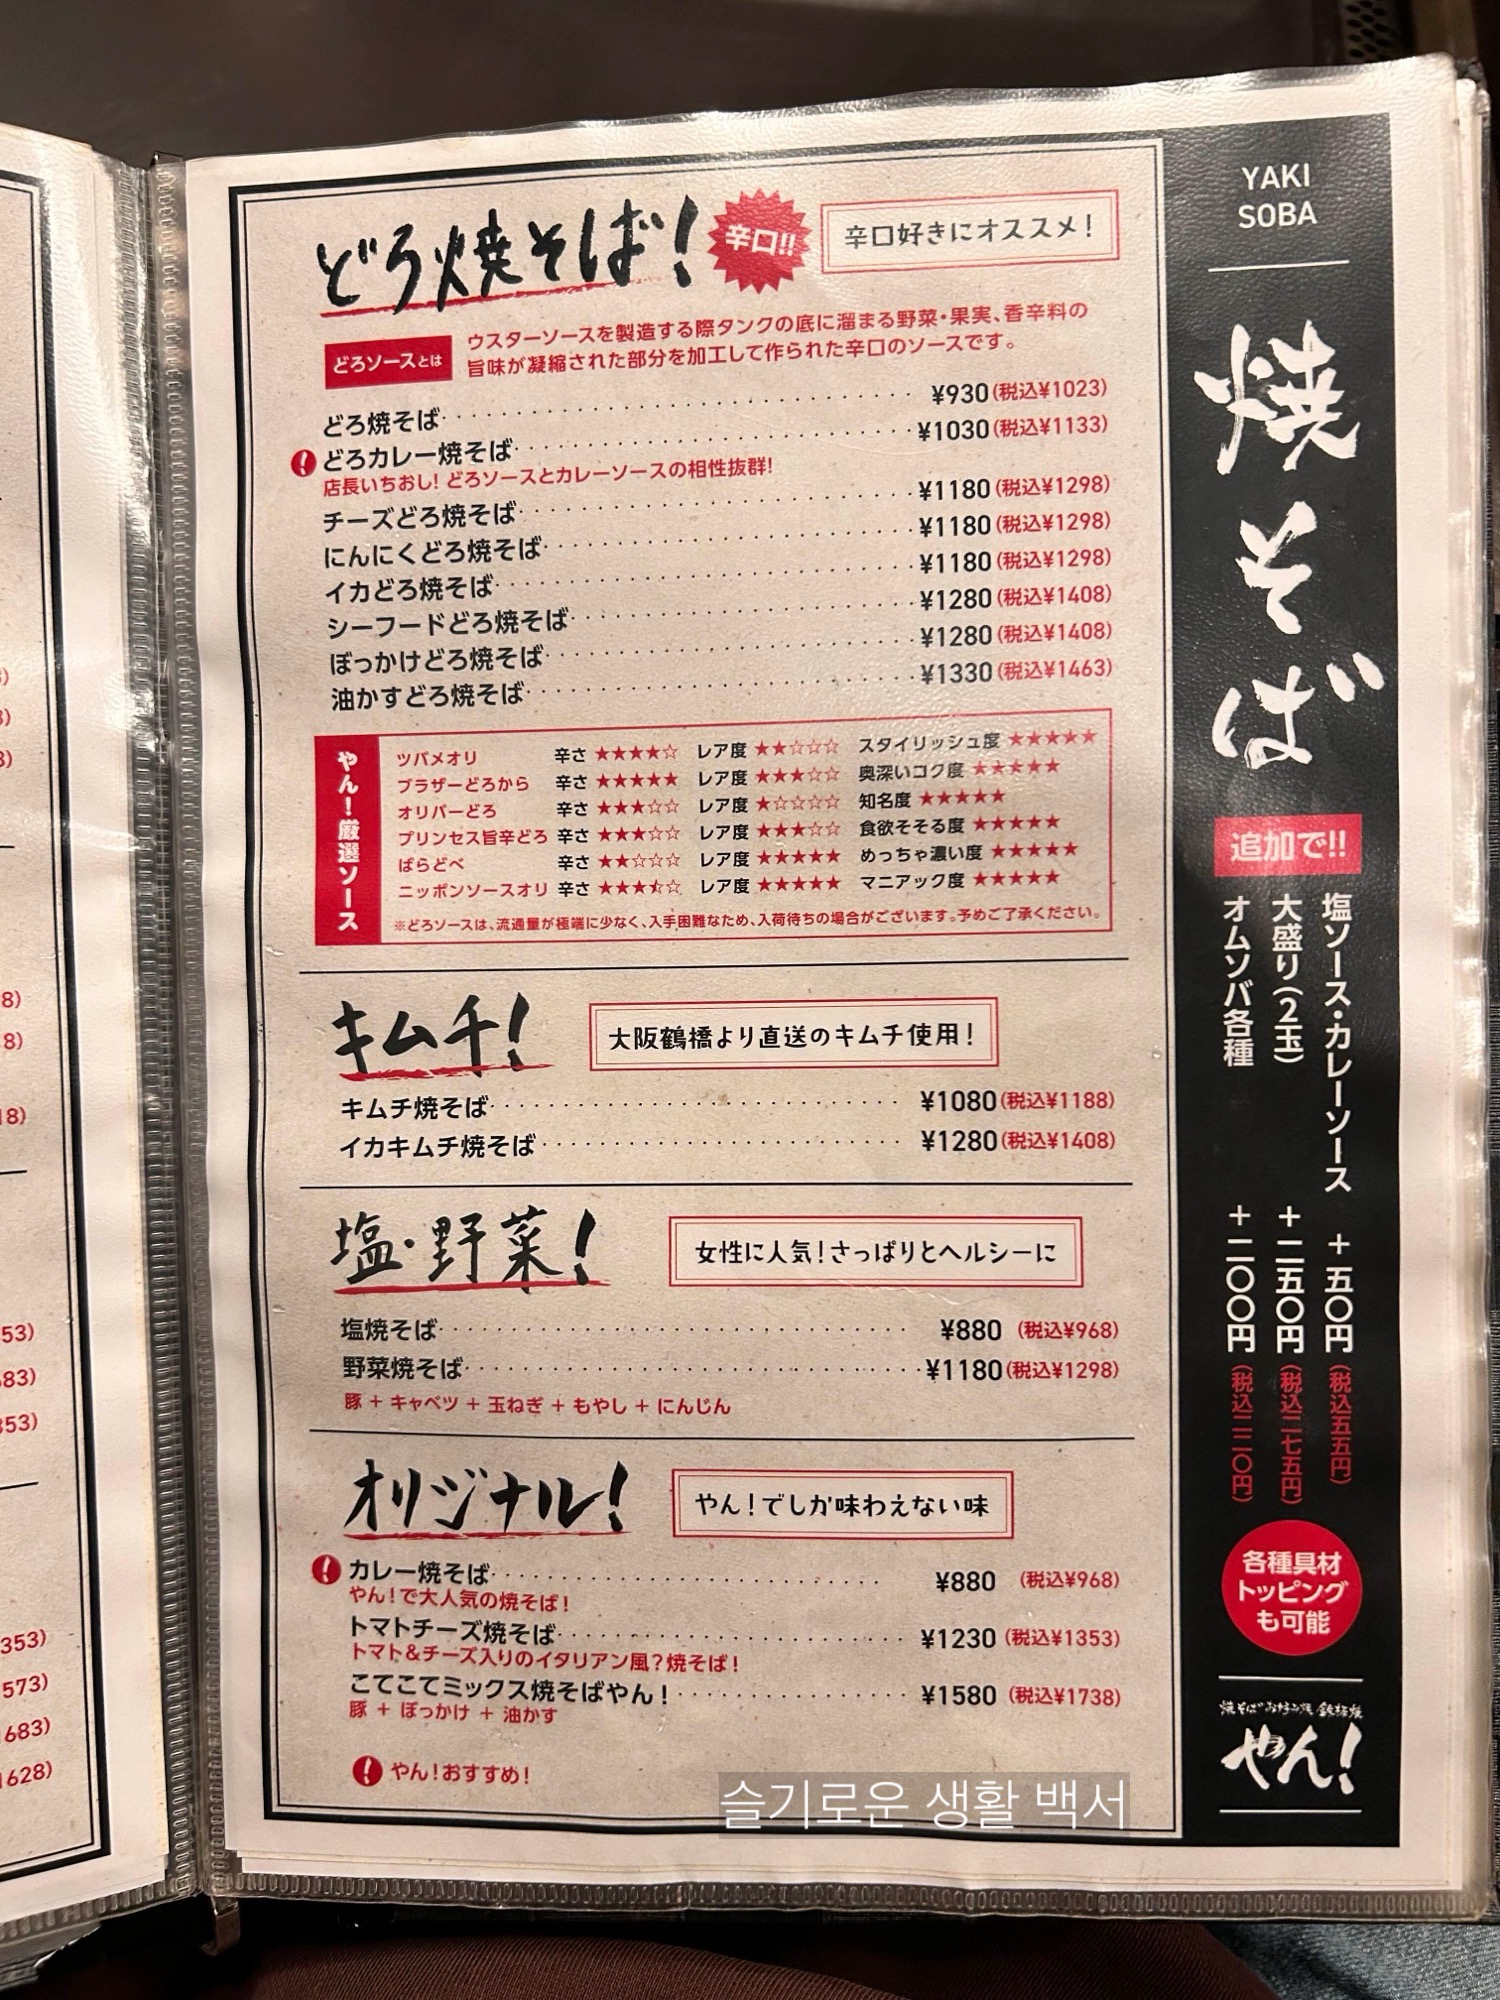 どろ焼そば!
辛口!!
辛口好きにオススメ!
どろソースとは
ウスターソースを製造する際タンクの底に溜まる野菜・果実、香辛料の
旨味が凝縮された部分を加工して作られた辛口のソースです。
どろ焼そば ¥930(税込¥1023)
どろカレー焼そば ¥1030(税込¥1133)
店長いちおし! どろソースとカレーソースの相性抜群!
チーズどろ焼そば ¥1180(税込¥1298)
にんにくどろ焼そば ¥1180(税込¥1298)
イカどろ焼そば ¥1180(税込¥1298)
シーフードどろ焼そば ¥1280(税込¥1408)
ぼっかけどろ焼そば ¥1280(税込¥1408)
油かすどろ焼そば ¥1330(税込¥1463)
やん!厳選ソース
ツバメオリ 辛さ ★★★★☆ レア度 ★★☆☆☆ スタイリッシュ度 ★★★★★
ブラザーどろから 辛さ ★★★★★ レア度 ★★★☆☆ 奥深いコク度 ★★★★★
オリバーどろ 辛さ ★★★☆☆ レア度 ★☆☆☆☆ 知名度 ★★★★★
プリンセス旨辛どろ 辛さ ★★★☆☆ レア度 ★★★☆☆ 食欲そそる度 ★★★★★
ばらどべ 辛さ ★★☆☆☆ レア度 ★★★★★ めっちゃ濃い度 ★★★★★
ニッポンソースオリ 辛さ ★★★⯪☆ レア度 ★★★★★ マニアック度 ★★★★★
※どろソースは、流通量が極端に少なく、入手困難なため、入荷待ちの場合がございます。予めご了承ください。
キムチ!
大阪鶴橋より直送のキムチ使用!
キムチ焼そば ¥1080(税込¥1188)
イカキムチ焼そば ¥1280(税込¥1408)
塩・野菜!
女性に人気!さっぱりとヘルシーに
塩焼そば ¥880 (税込¥968)
野菜焼そば ¥1180(税込¥1298)
豚 + キャベツ + 玉ねぎ + もやし + にんじん
オリジナル!
やん!でしか味わえない味
カレー焼そば ¥880 (税込¥968)
やん!で大人気の焼そば!
トマトチーズ焼そば ¥1230 (税込¥1353)
トマト&チーズ入りのイタリアン風?焼そば!
こてこてミックス焼そばやん! ¥1580 (税込¥1738)
豚 + ぼっかけ + 油かす
やん!おすすめ!
YAKI
SOBA
焼そば
追加で!!
塩ソース・カレーソース +五〇円(税込五五円)
大盛り(2玉) +二五〇円(税込二七五円)
オムソバ各種 +二〇〇円(税込二二〇円)
各種具材
トッピング
も可能
焼そば お好み焼 鉄板焼
やん!
8)
8)
18)
53)
353)
573)
683)
628)
슬기로운 생활 백서